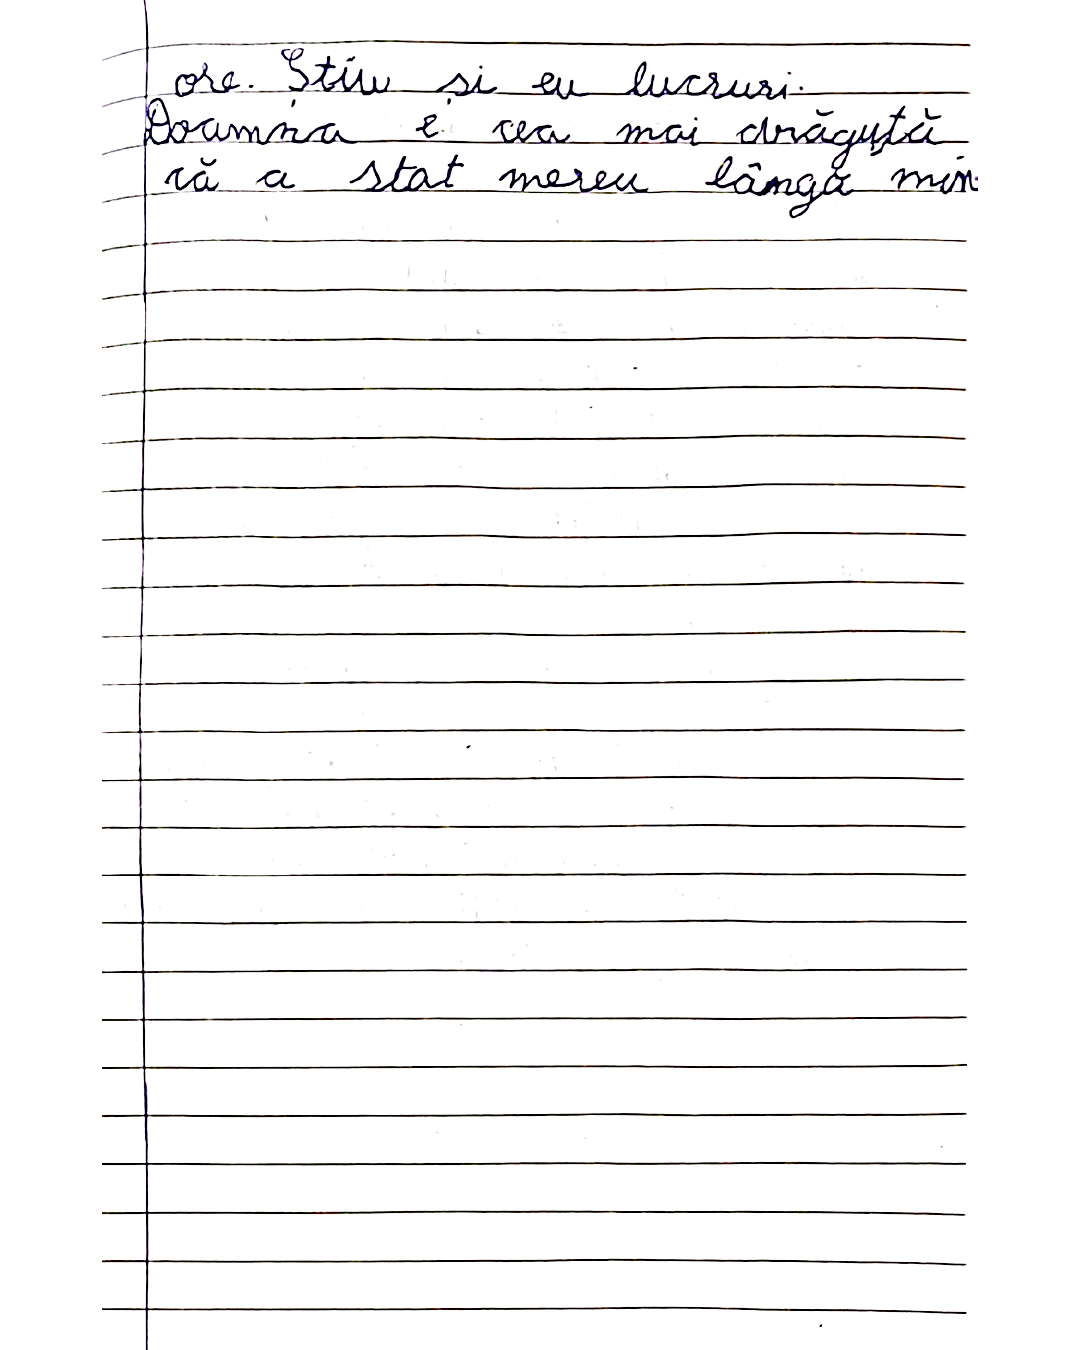 ore. Știu și eu lucruri.
Doamna e cea mai drăguță
că a stat mereu lângă min